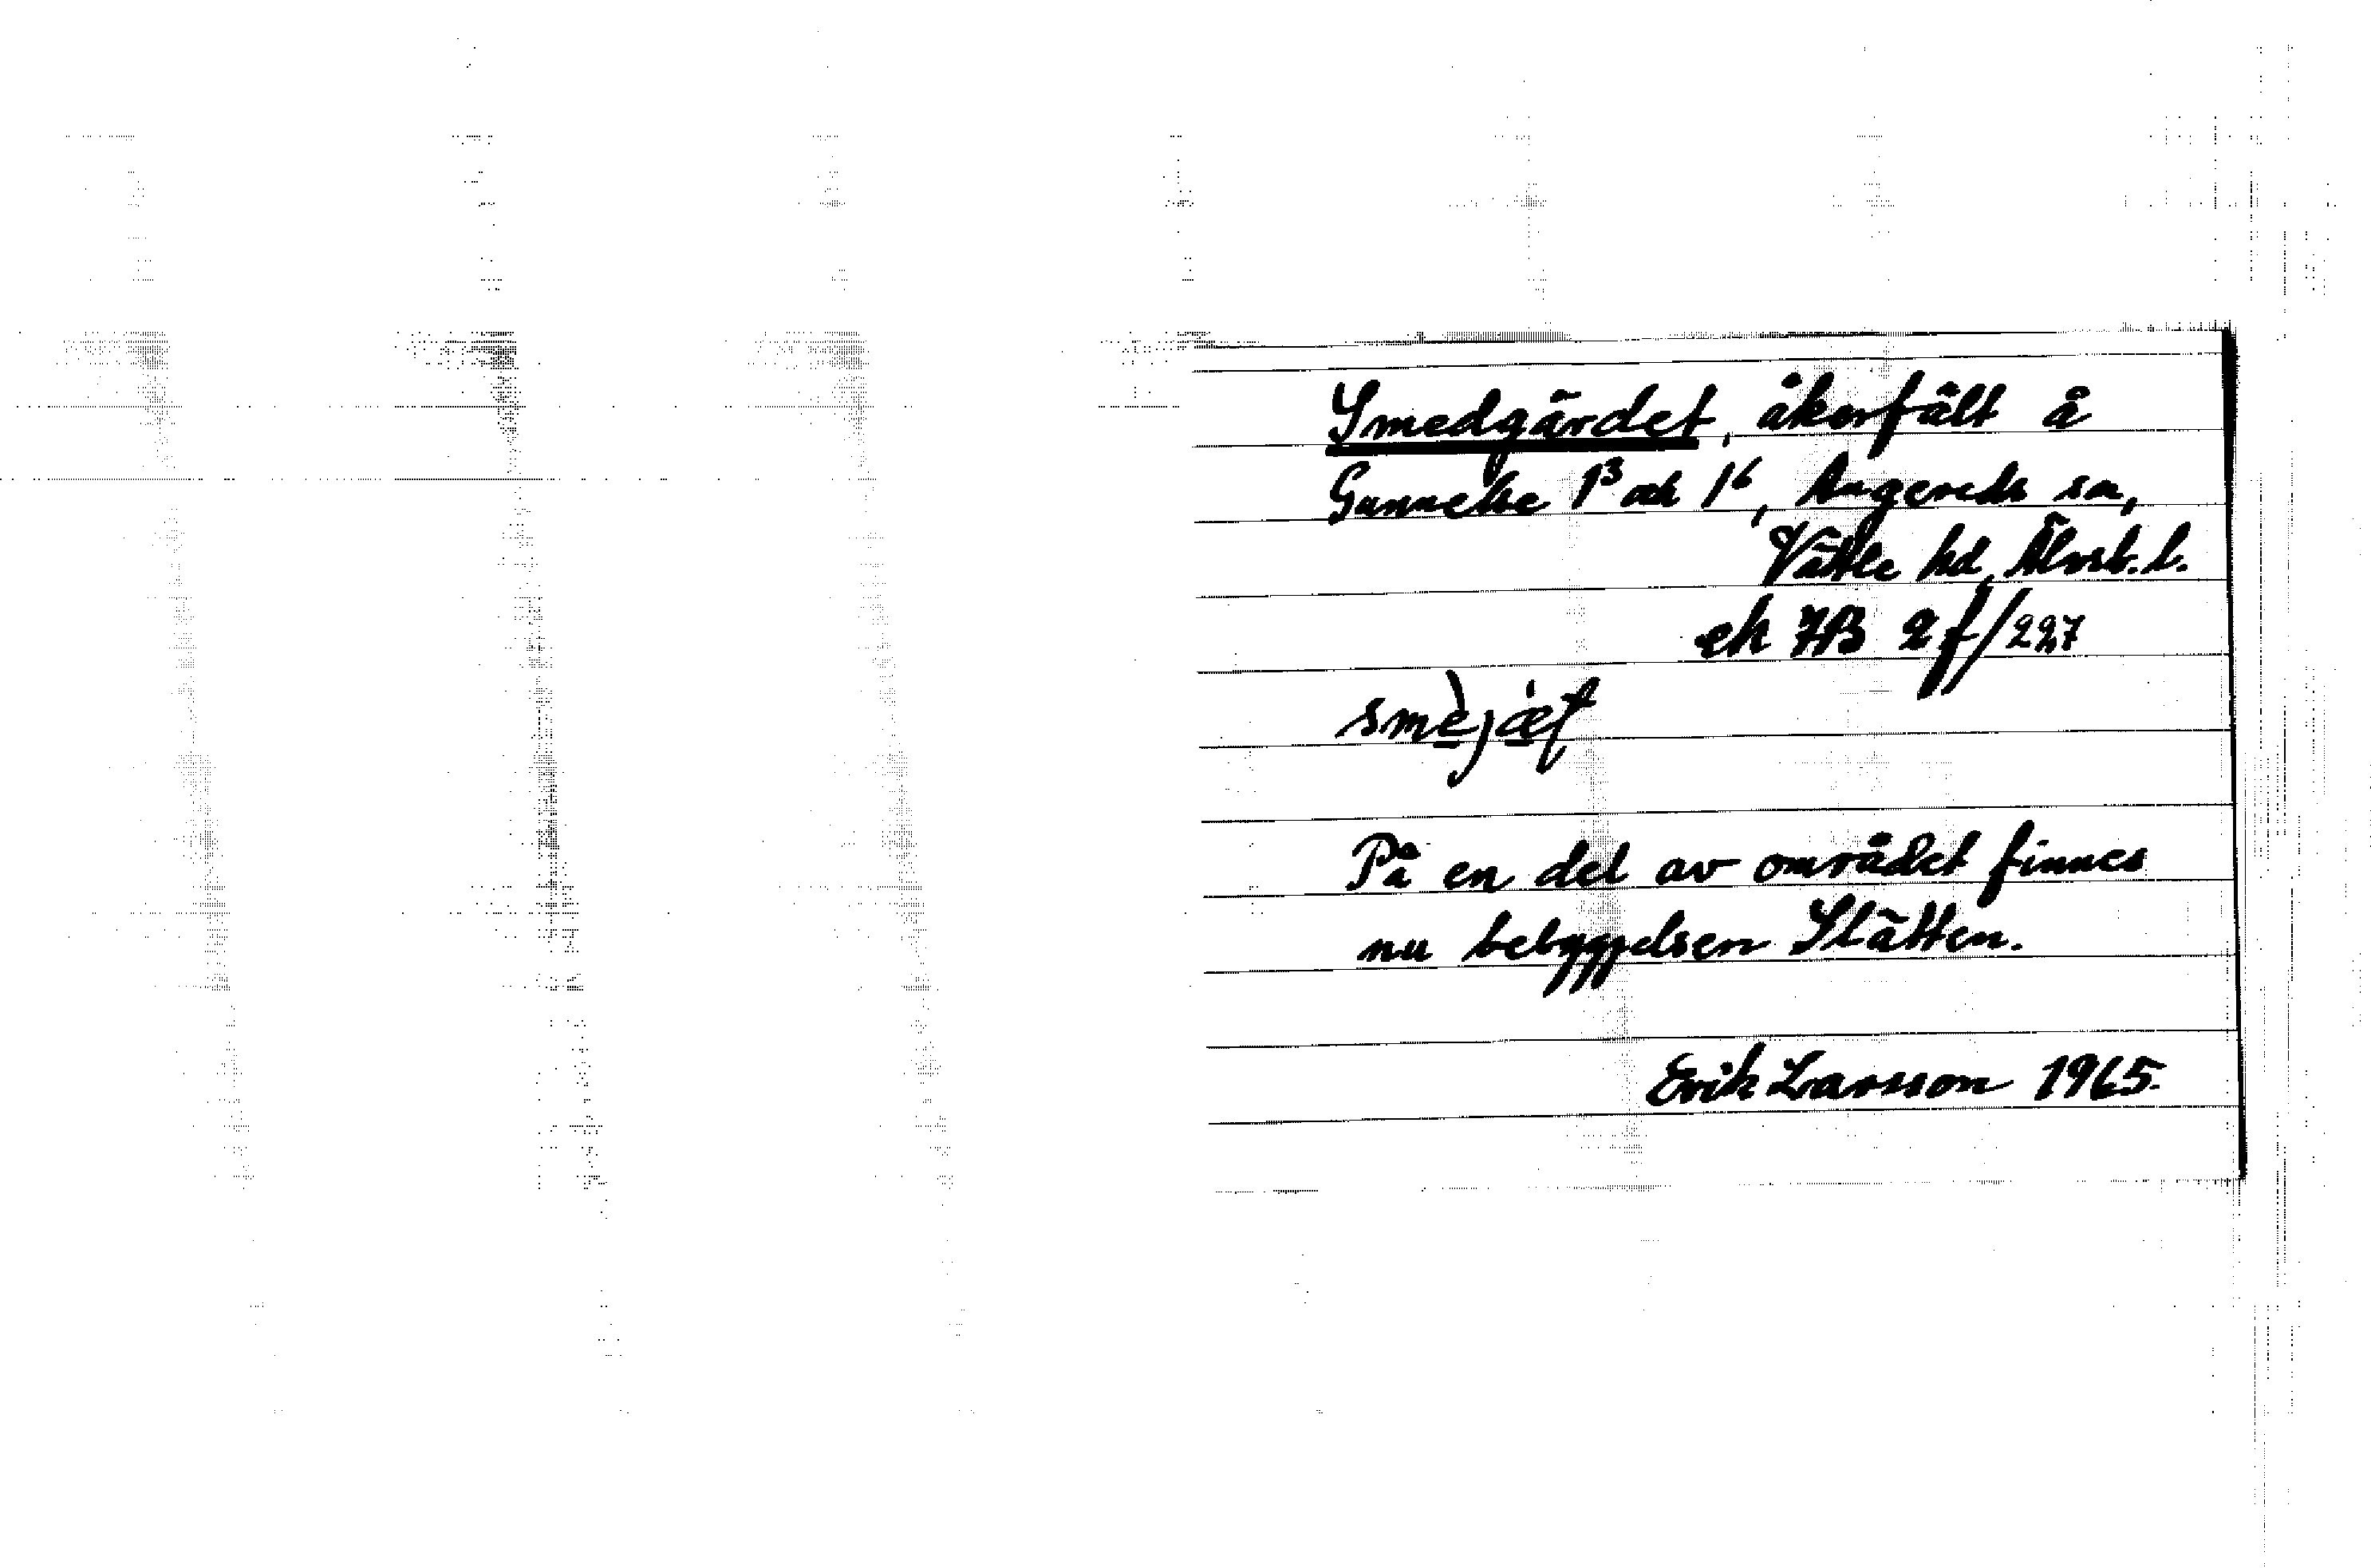 Smedgärdet, åkerfält å
Gunnelse 1³ och 1⁶, Angereds sn,
Vättle hd, Älvsb. l.
ek 7B 2f/227
På en del av området finnes
nu bebyggelsen Slätten.
Erik Larsson 1965.